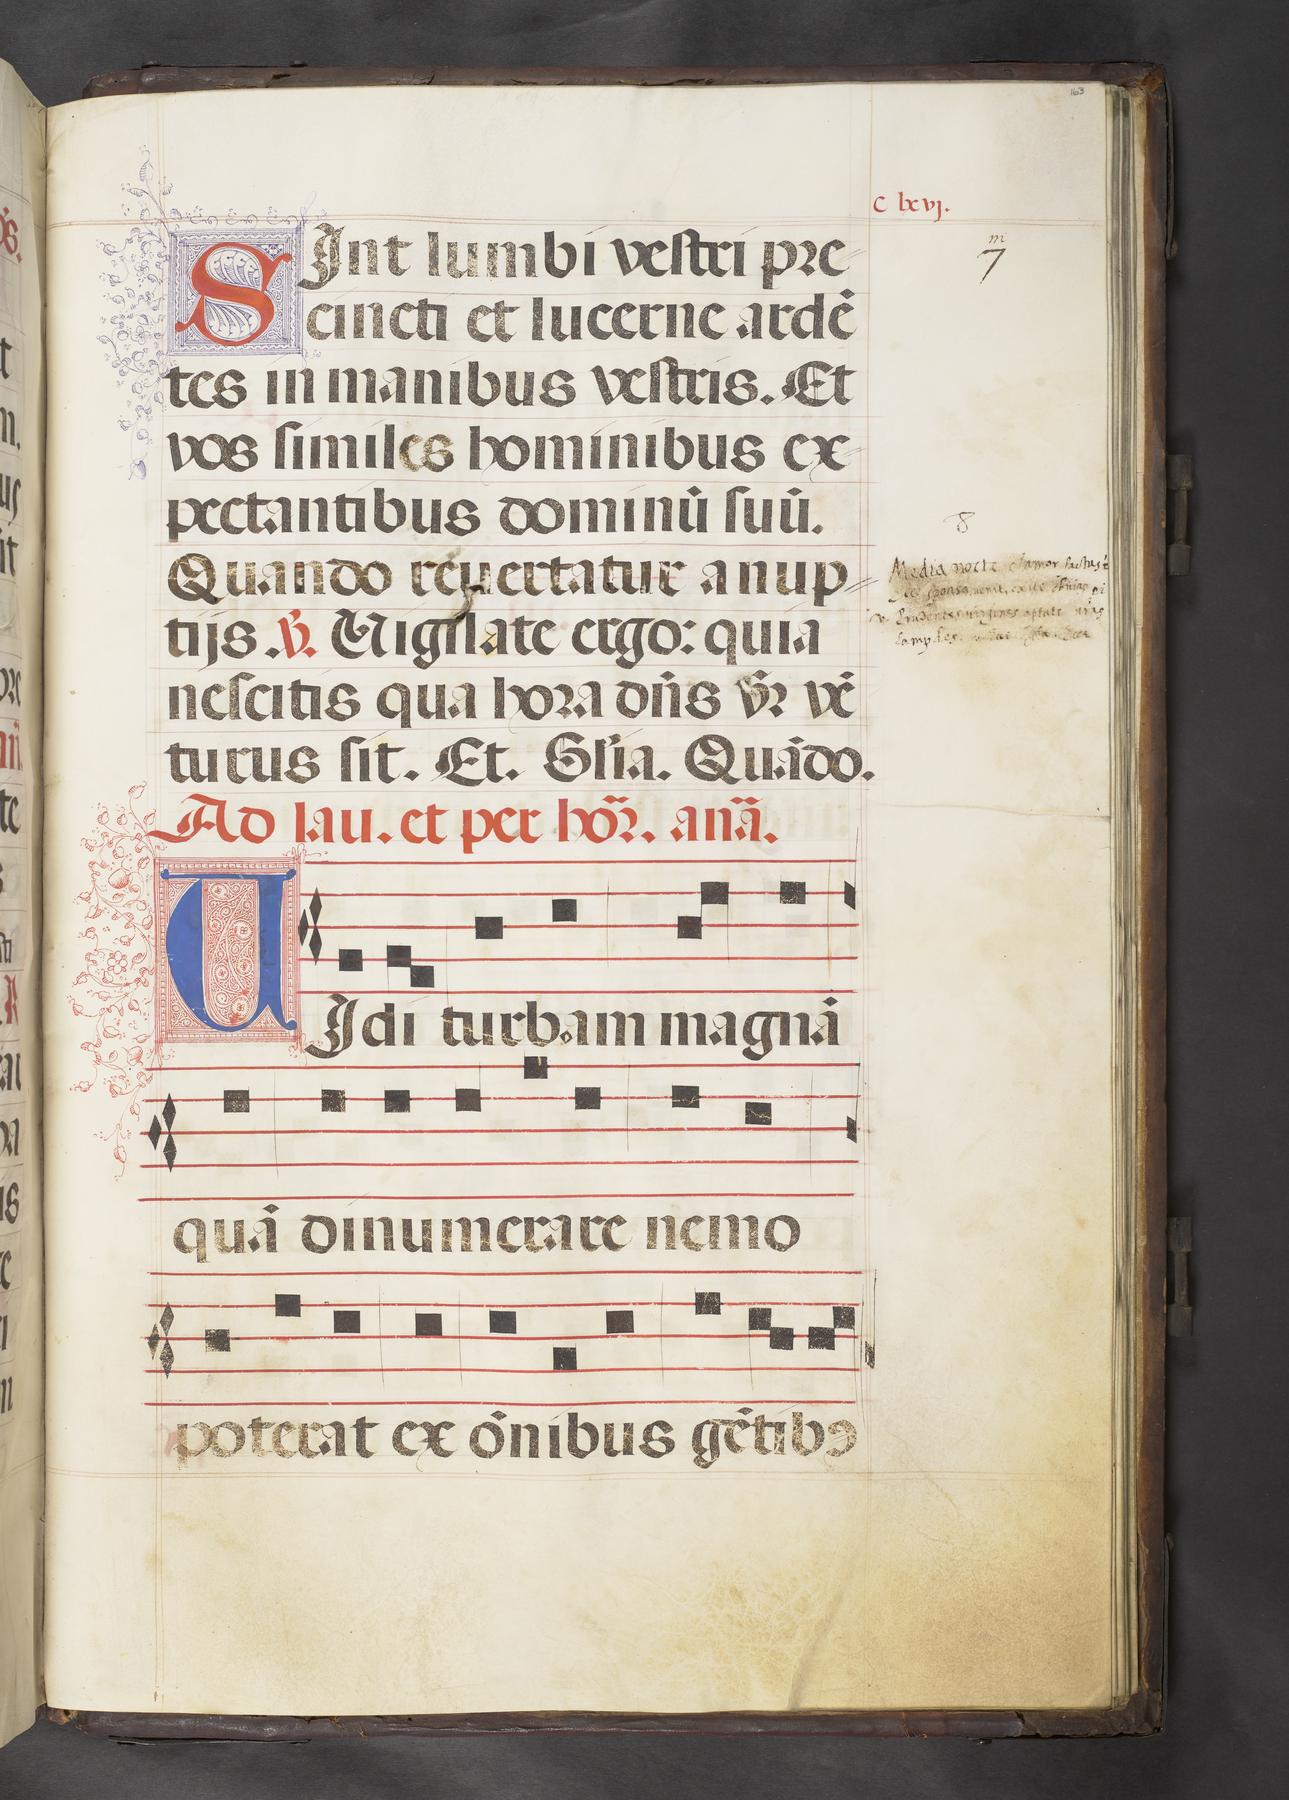 163
C lxvj.
SInt lumbi vestri pre
cincti et lucerne ardẽ
tes in manibus vestris. Et
vos similes hominibus ex
pectantibus dominũ suũ.
Quando reuertatur a nup
tijs .℣. Vigilate ergo: quia
nescitis qua hora dñs vr̃ vẽ
turus sit. Et. Glia. Quãdo.
Ad lau. et per hor̃. anã.
VIdi turbam magnã
quã dinumerare nemo
poterat ex õnibus gẽtibꝰ
m
7
8
Media nocte clamor factus
v. Prudentes virgines aptate